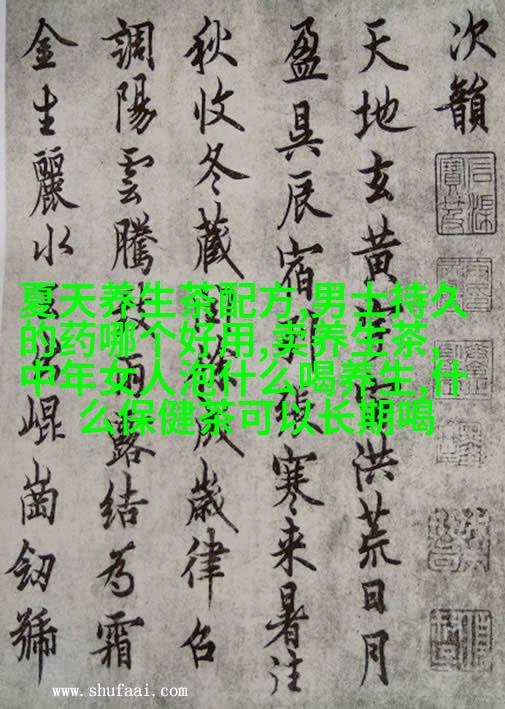 次韻
天地玄黄宇洪荒日月
盈昃辰宿列張寒来暑往
秋收冬藏閏歲律召
調陽雲騰致雨露結為霜
金生麗水崐崗劒號
夏天养生茶配方,男士持久
的药哪个好用,卖养生茶,
中年女人泡什么喝养生,什
么保健茶可以长期喝
www.shufaai.com